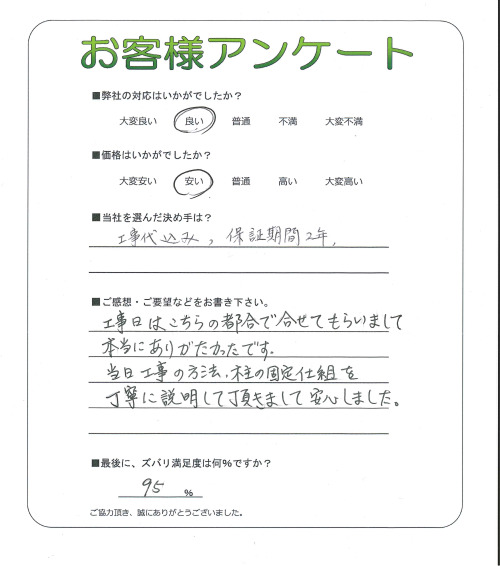 お客様アンケート
■弊社の対応はいかがでしたか？
大変良い 良い 普通 不満 大変不満
■価格はいかがでしたか？
大変安い 安い 普通 高い 大変高い
■当社を選んだ決め手は？
工事代込み, 保証期間2年,
■ご感想・ご要望などをお書き下さい。
工事日はこちらの都合で合せてもらいまして
本当にありがたかったです.
当日工事の方法.柱の固定仕組を
丁寧に説明して頂きまして安心しました。
■最後に、ズバリ満足度は何％ですか？
95 ％
ご協力頂き、誠にありがとうございました。